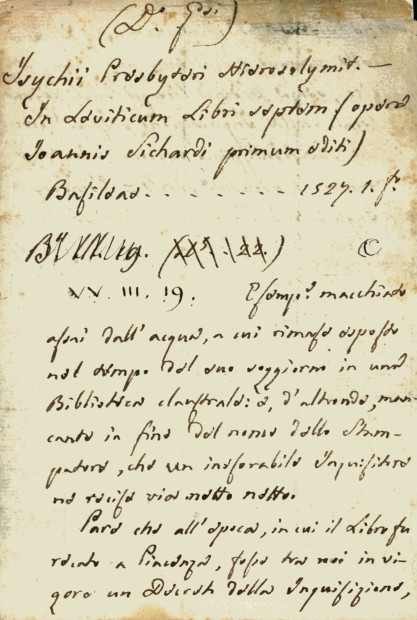 Isychii Presbyteri Hierosolymit. —
In Leviticum Libri septem (opera
Ioannis Sichardi primum editi)
Basileae . . . . . . . . 1527. 1. fo.
©
VV. III. 19. Esempe. macchiato
assai dall' acqua, a cui rimase esposto
nel tempo del suo soggiorno in una
Biblioteca claustrale: è, d'altronde, man-
cante in fine del nome dello Stam-
patore, che un inesorabile Inquisitore
ne recise via netto netto.
Pare che all' epoca, in cui il Libro fu
recato a Piacenza, fosse tra noi in vi-
gore un Decreto della Inquisizione,